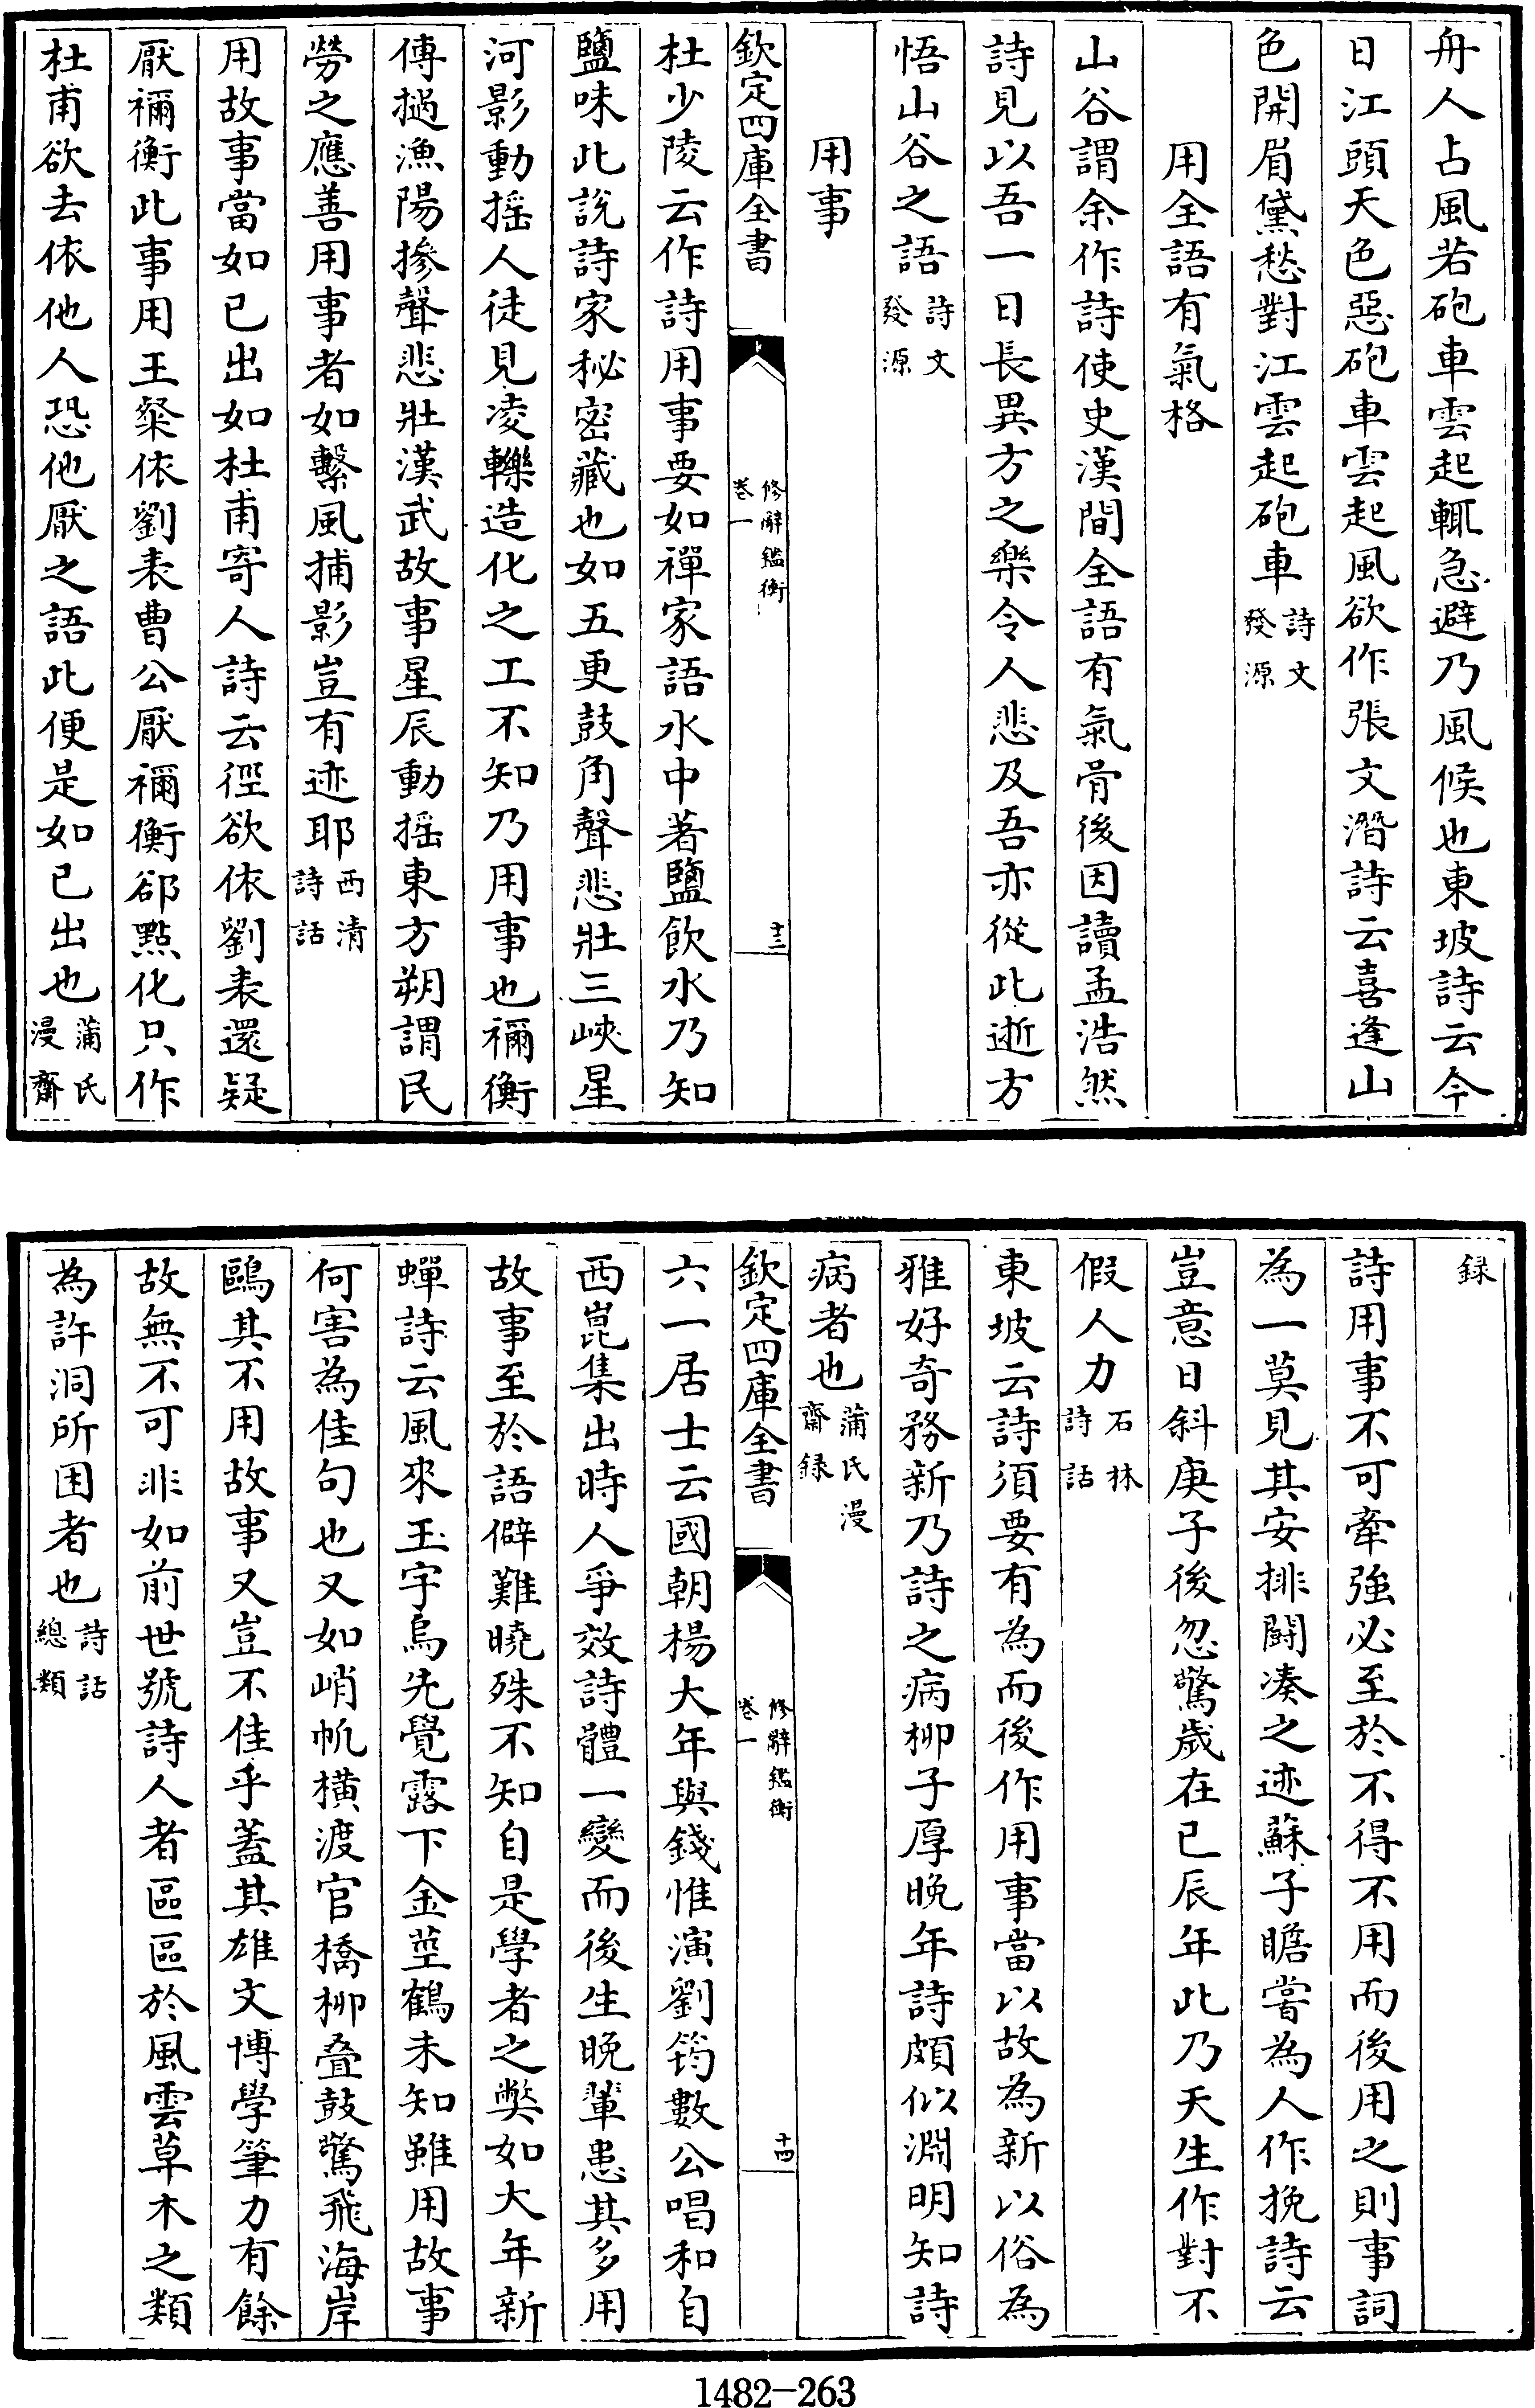 舟人占風若砲車雲起輒急避乃風候也東坡詩云今
日江頭天色惡砲車雲起風欲作張文潛詩云喜逢山
色開眉黛愁對江雲起砲車詩文發源
用全語有氣格
山谷謂余作詩使史漢間全語有氣骨後因讀孟浩然
詩見以吾一日長異方之樂令人悲及吾亦從此逝方
悟山谷之語詩文發源
用事
欽定四庫全書 修辭鑑衡 卷一 十三
杜少陵云作詩用事要如禪家語水中著鹽飲水乃知
鹽味此說詩家秘密藏也如五更鼓角聲悲壯三峽星
河影動搖人徒見凌轢造化之工不知乃用事也禰衡
傳撾漁陽摻聲悲壯漢武故事星辰動搖東方朔謂民
勞之應善用事者如繫風捕影豈有迹耶西清詩話
用故事當如已出如杜甫寄人詩云徑欲依劉表還疑
厭禰衡此事用王粲依劉表曹公厭禰衡郤點化只作
杜甫欲去依他人恐他厭之語此便是如已出也蒲氏漫齋
録
詩用事不可牽強必至於不得不用而後用之則事詞
為一莫見其安排鬪湊之迹蘇子瞻嘗為人作挽詩云
豈意日斜庚子後忽驚歲在已辰年此乃天生作對不
假人力石林詩話
東坡云詩須要有為而後作用事當以故為新以俗為
雅好奇務新乃詩之病柳子厚晚年詩頗似淵明知詩
病者也蒲氏漫齋録
欽定四庫全書 修辭鑑衡 卷一 十四
六一居士云國朝楊大年與錢惟演劉筠數公唱和自
西崑集出時人爭效詩體一變而後生晚輩患其多用
故事至於語僻難曉殊不知自是學者之弊如大年新
蟬詩云風來玉宇烏先覺露下金莖鶴未知雖用故事
何害為佳句也又如峭帆橫渡官橋柳叠鼓驚飛海岸
鷗其不用故事又豈不佳乎蓋其雄文博學筆力有餘
故無不可非如前世號詩人者區區於風雲草木之類
為許洞所困者也詩話總類
1482-263